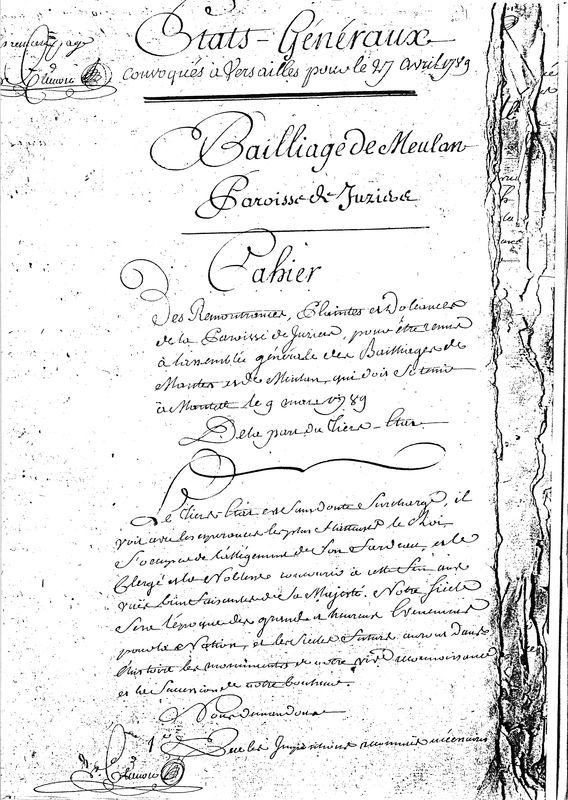 premiere page
États-Généraux
Convoqués à Versailles pour le 27 avril 1789
Bailliage de Meulan
Paroisse de Juziers
Cahier
Des Remontrances, Plaintes et Doleances
de la Paroisse de Juziers, pour être remis
à l'assemblée générale des Bailliages de
Mantes et de Meulan, qui doit se tenir
à Mantes le 9 mars 1789
De la part du Tiers-Etat
Le Tiers-Etat est sans doute surchargé, il
voit avec les esperances les plus flatteuses le Roi
s'occuper de l'allégement de son fardeau, et le
Clergé et la Noblesse concourir à cette fin aux
vues bienfaisantes de sa Majesté. Notre siecle
sera l'époque des grands et heureux Evenemens
pour la Nation, et les siecles futurs auront dans
l'histoire les monumens de notre vive reconnoissance
et la de notre bonheur.
Nous demandons
1° Que les Impositions reconnues nécessaires